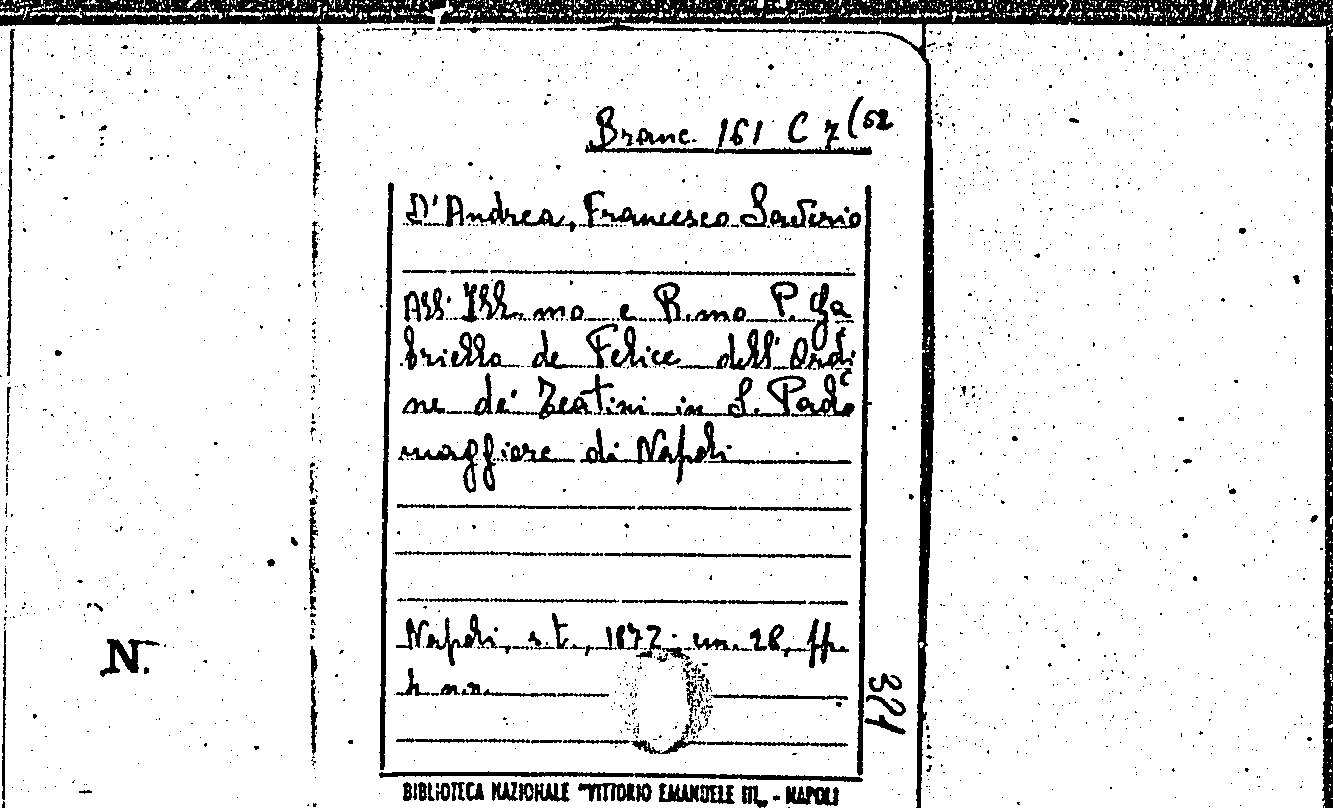 Branc. 161 C 7 (52
D'Andrea, Francesco Saverio
All' Ill.mo e R.mo P. Ga
briello de Felice dell' Ordi
ne de' Teatini in S. Paolo
maggiore di Napoli
Napoli, s.t., 1872; in. 28, pp.
4 n.n.
321
N.
BIBLIOTECA NAZIONALE "VITTORIO EMANUELE III„ - NAPOLI